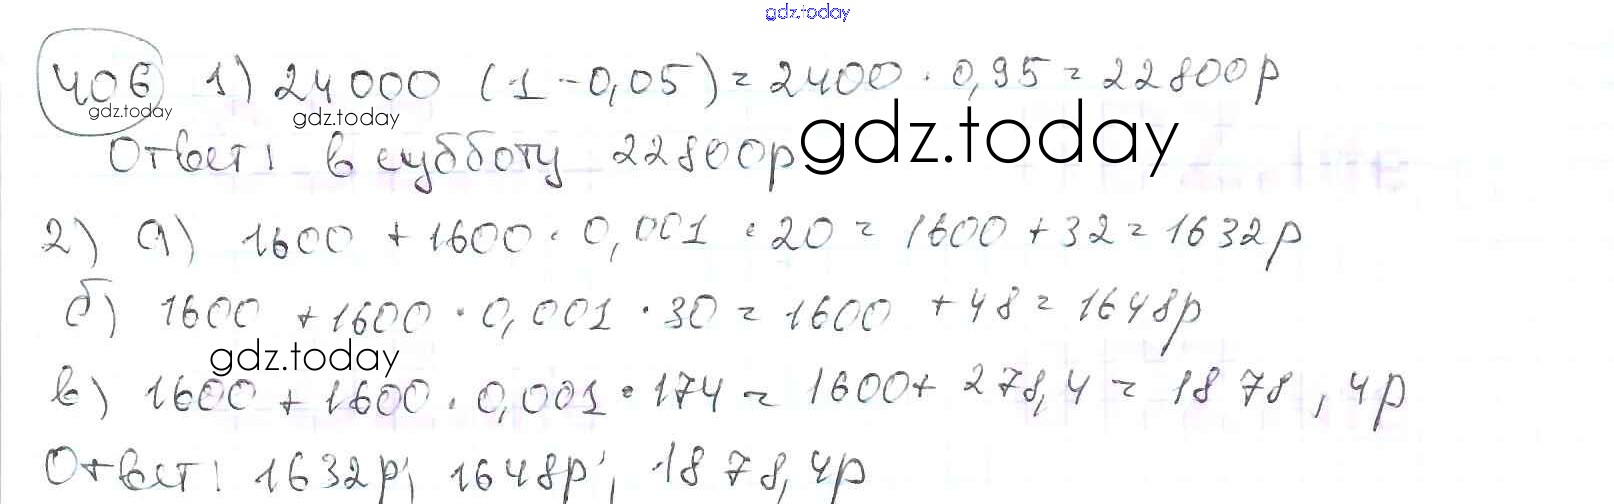 gdz.today
406 1) 24 000 (1 - 0,05) = 2400 · 0,95 = 22800р
gdz.today gdz.today gdz.today
Ответ: в субботу 22800р
2) а) 1600 + 1600 · 0,001 · 20 = 1600 + 32 = 1632р
б) 1600 + 1600 · 0,001 · 30 = 1600 + 48 = 1648р
gdz.today
в) 1600 + 1600 · 0,001 · 174 = 1600 + 278,4 = 1878,4р
Ответ: 1632р; 1648р; 1878,4р